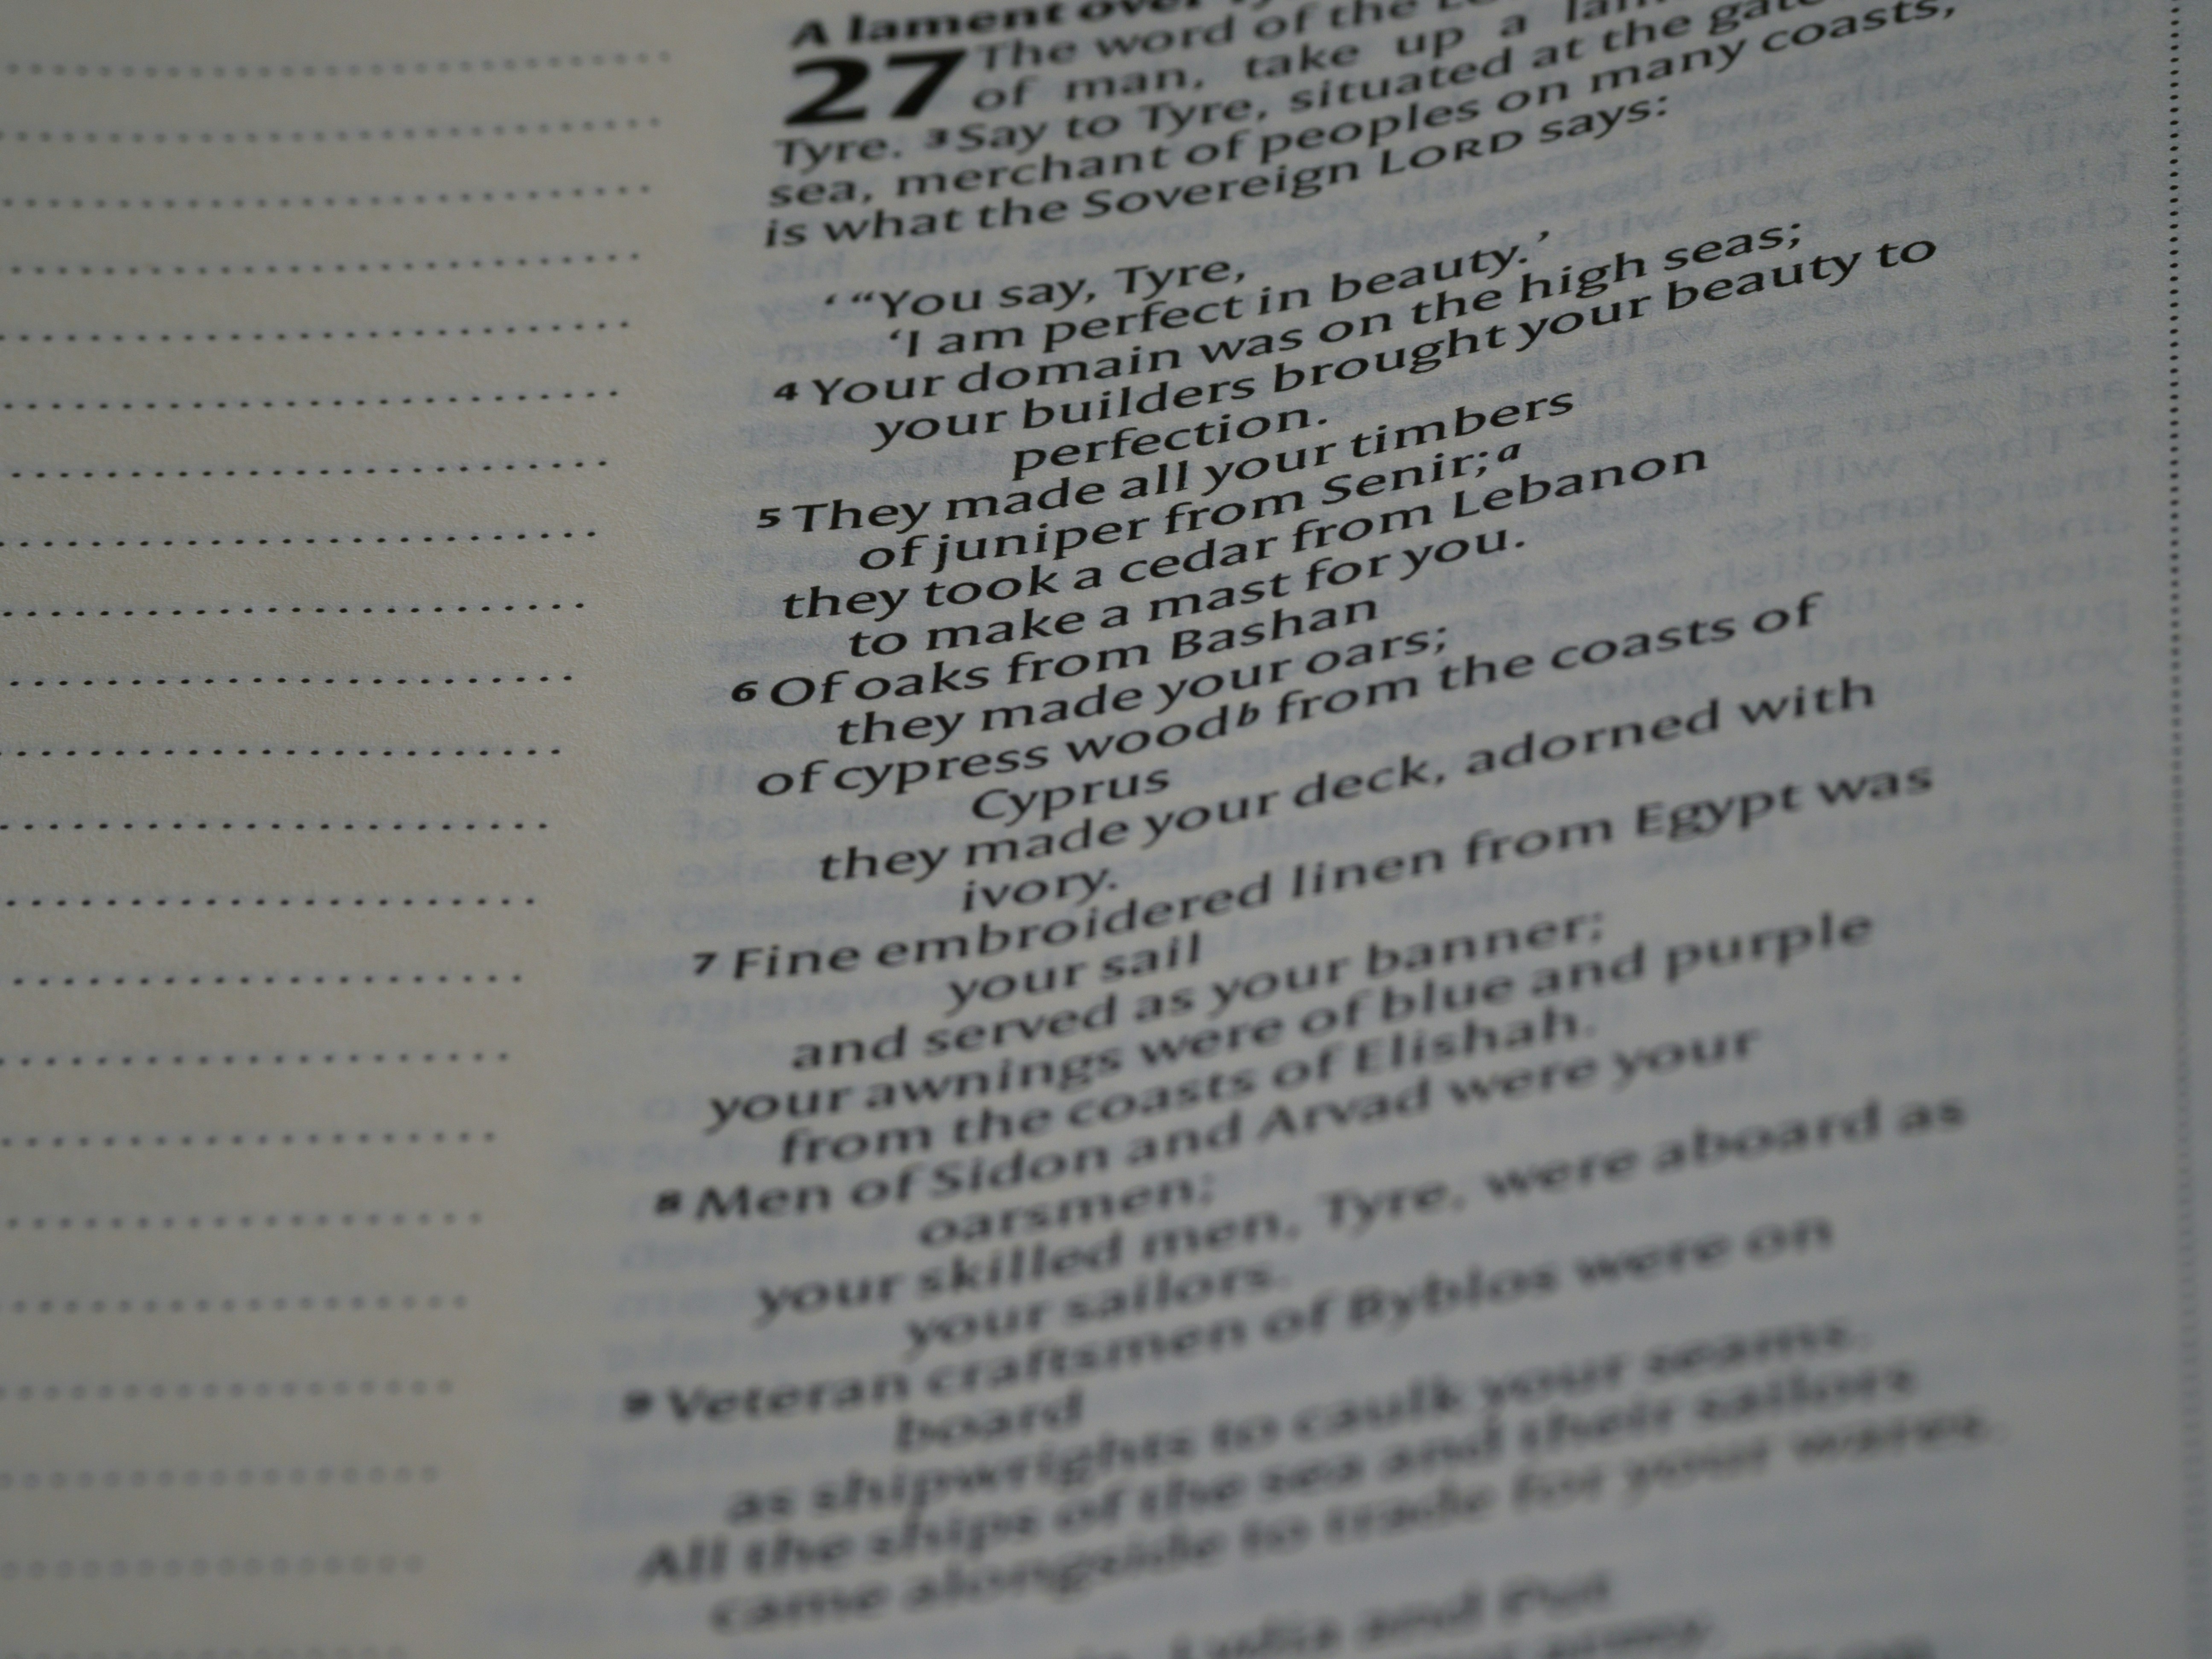 A lament over
27 The word of the
of man, take up a
Tyre. 3 Say to Tyre, situated at the
sea, merchant of peoples on many coasts,
is what the Sovereign LORD says:
‘ “You say, Tyre,
‘I am perfect in beauty.’
4 Your domain was on the high seas;
your builders brought your beauty to
perfection.
5 They made all your timbers
of juniper from Senir;a
they took a cedar from Lebanon
to make a mast for you.
6 Of oaks from Bashan
they made your oars;
of cypress woodb from the coasts of
Cyprus
they made your deck, adorned with
ivory.
7 Fine embroidered linen from Egypt was
your sail
and served as your banner;
your awnings were of blue and purple
from the coasts of Elishah.
8 Men of Sidon and Arvad were your
oarsmen;
your skilled men, Tyre, were aboard as
your sailors.
9 Veteran craftsmen of Byblos were on
board
as shipwrights to caulk your seams.
All the ships of the sea and their sailors
came alongside to trade for your wares.
Lydia and Put